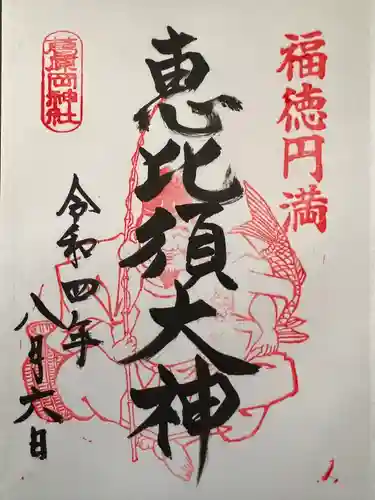 福徳円満
恵比須大神
葛葉岡神社
令和四年
八月六日